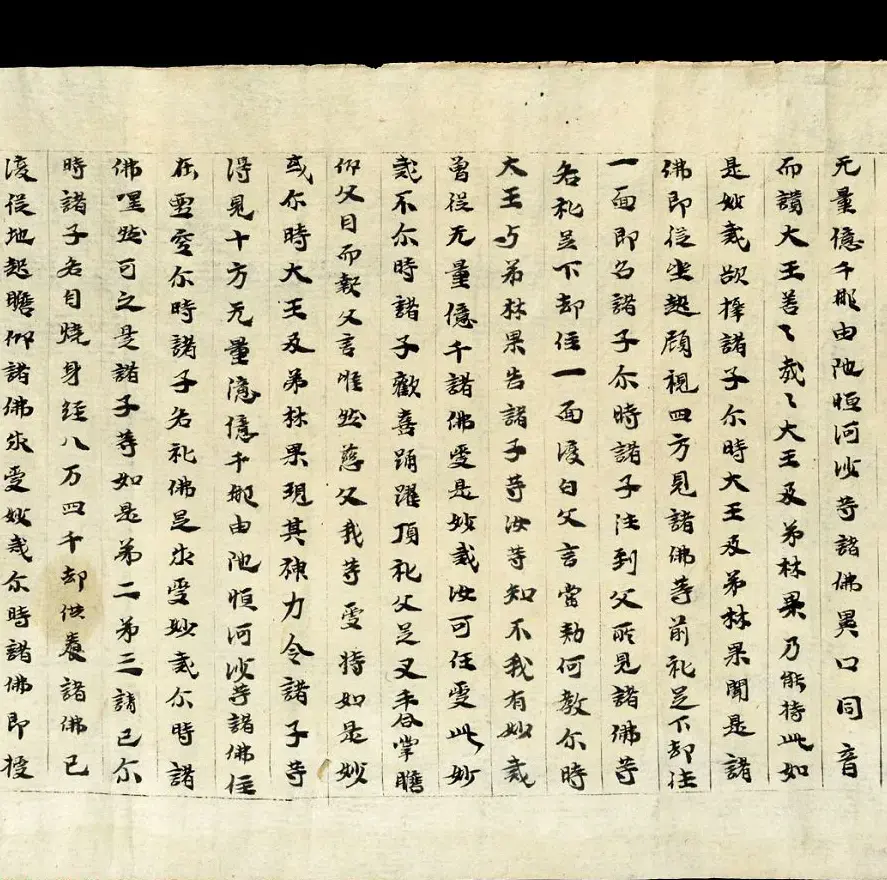 无量億千那由他恒河沙等諸佛異口同音
而讃大王善〻哉〻大王及弟林果乃能持此如
是妙戒欲擇諸子尒時大王及弟林果聞是諸
佛即從坐起顧視四方見諸佛等前礼足下却住
一面即召諸子尒時諸子注到父所見諸佛等
各礼足下却住一面復白父言當勑何教尒時
大王与弟林果告諸子等汝等知不我有妙戒
曽從无量億千諸佛受是妙戒汝可任受此妙
戒不尒時諸子歡喜踊躍頂礼父足叉手合掌瞻
仰父目而報父言惟然慈父我等受持如是妙
戒尒時大王及弟林果現其神力令諸子等
得見十方无量億億千那由他恒河沙等諸佛住
在虛空尒時諸子各礼佛足求受妙戒尒時諸
佛嘿然可之是諸子等如是弟二弟三請已尒
時諸子各自燒身經八万四千却供養諸佛已
復從地起瞻仰諸佛求受妙戒尒時諸佛即授